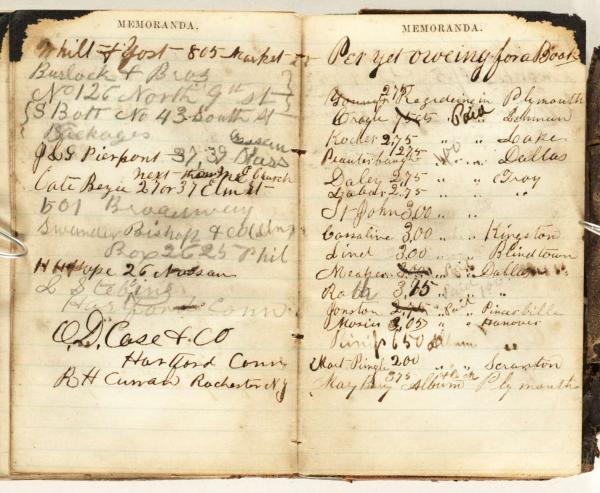 MEMORANDA.
Whill & Yost 805 Market St
Burlock & Bros
No 126 North 9th St
S Bott No 43 South St
Packages
J & G Pierpont 37, 39 Nassau
next Church
Cate Bezie 27 or 37 Elm St
501 Broadway
Bishop & Co
Box 2625 Phil
H H Pope 26 Nassau
L Stebins
Hartford Conn
O. D. Case & CO
Hartford Conn
R H Curran Rochester N Y
MEMORANDA.
Per yet oweing for a Book
Young 2.75 Regideing in Plymouth
Cragle Paid Lehman
Rocher 2.75 " " Lake
Dallas
Daley 2.75 " " Troy
2.75 " " "
St John 3.00 " "
Cassaline 3.00 " " Kingston
Line 3.00 " " Blindtown
Dallas
3.15 "
Jonston Paid
Mosier 3.05 " Hanover
6 50 Album
Mart Pringle 2 00 " " Scranton
May Bury 3 75 Album Plymouth